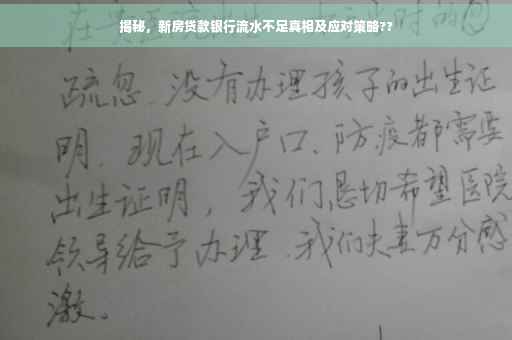 揭秘，新房贷款银行流水不足真相及应对策略??
疏忽、没有办理孩子的出生证
明。现在入户口、防疫都需要
出生证明，我们恳切希望医院
领导给予办理。我们夫妻万分感
激。